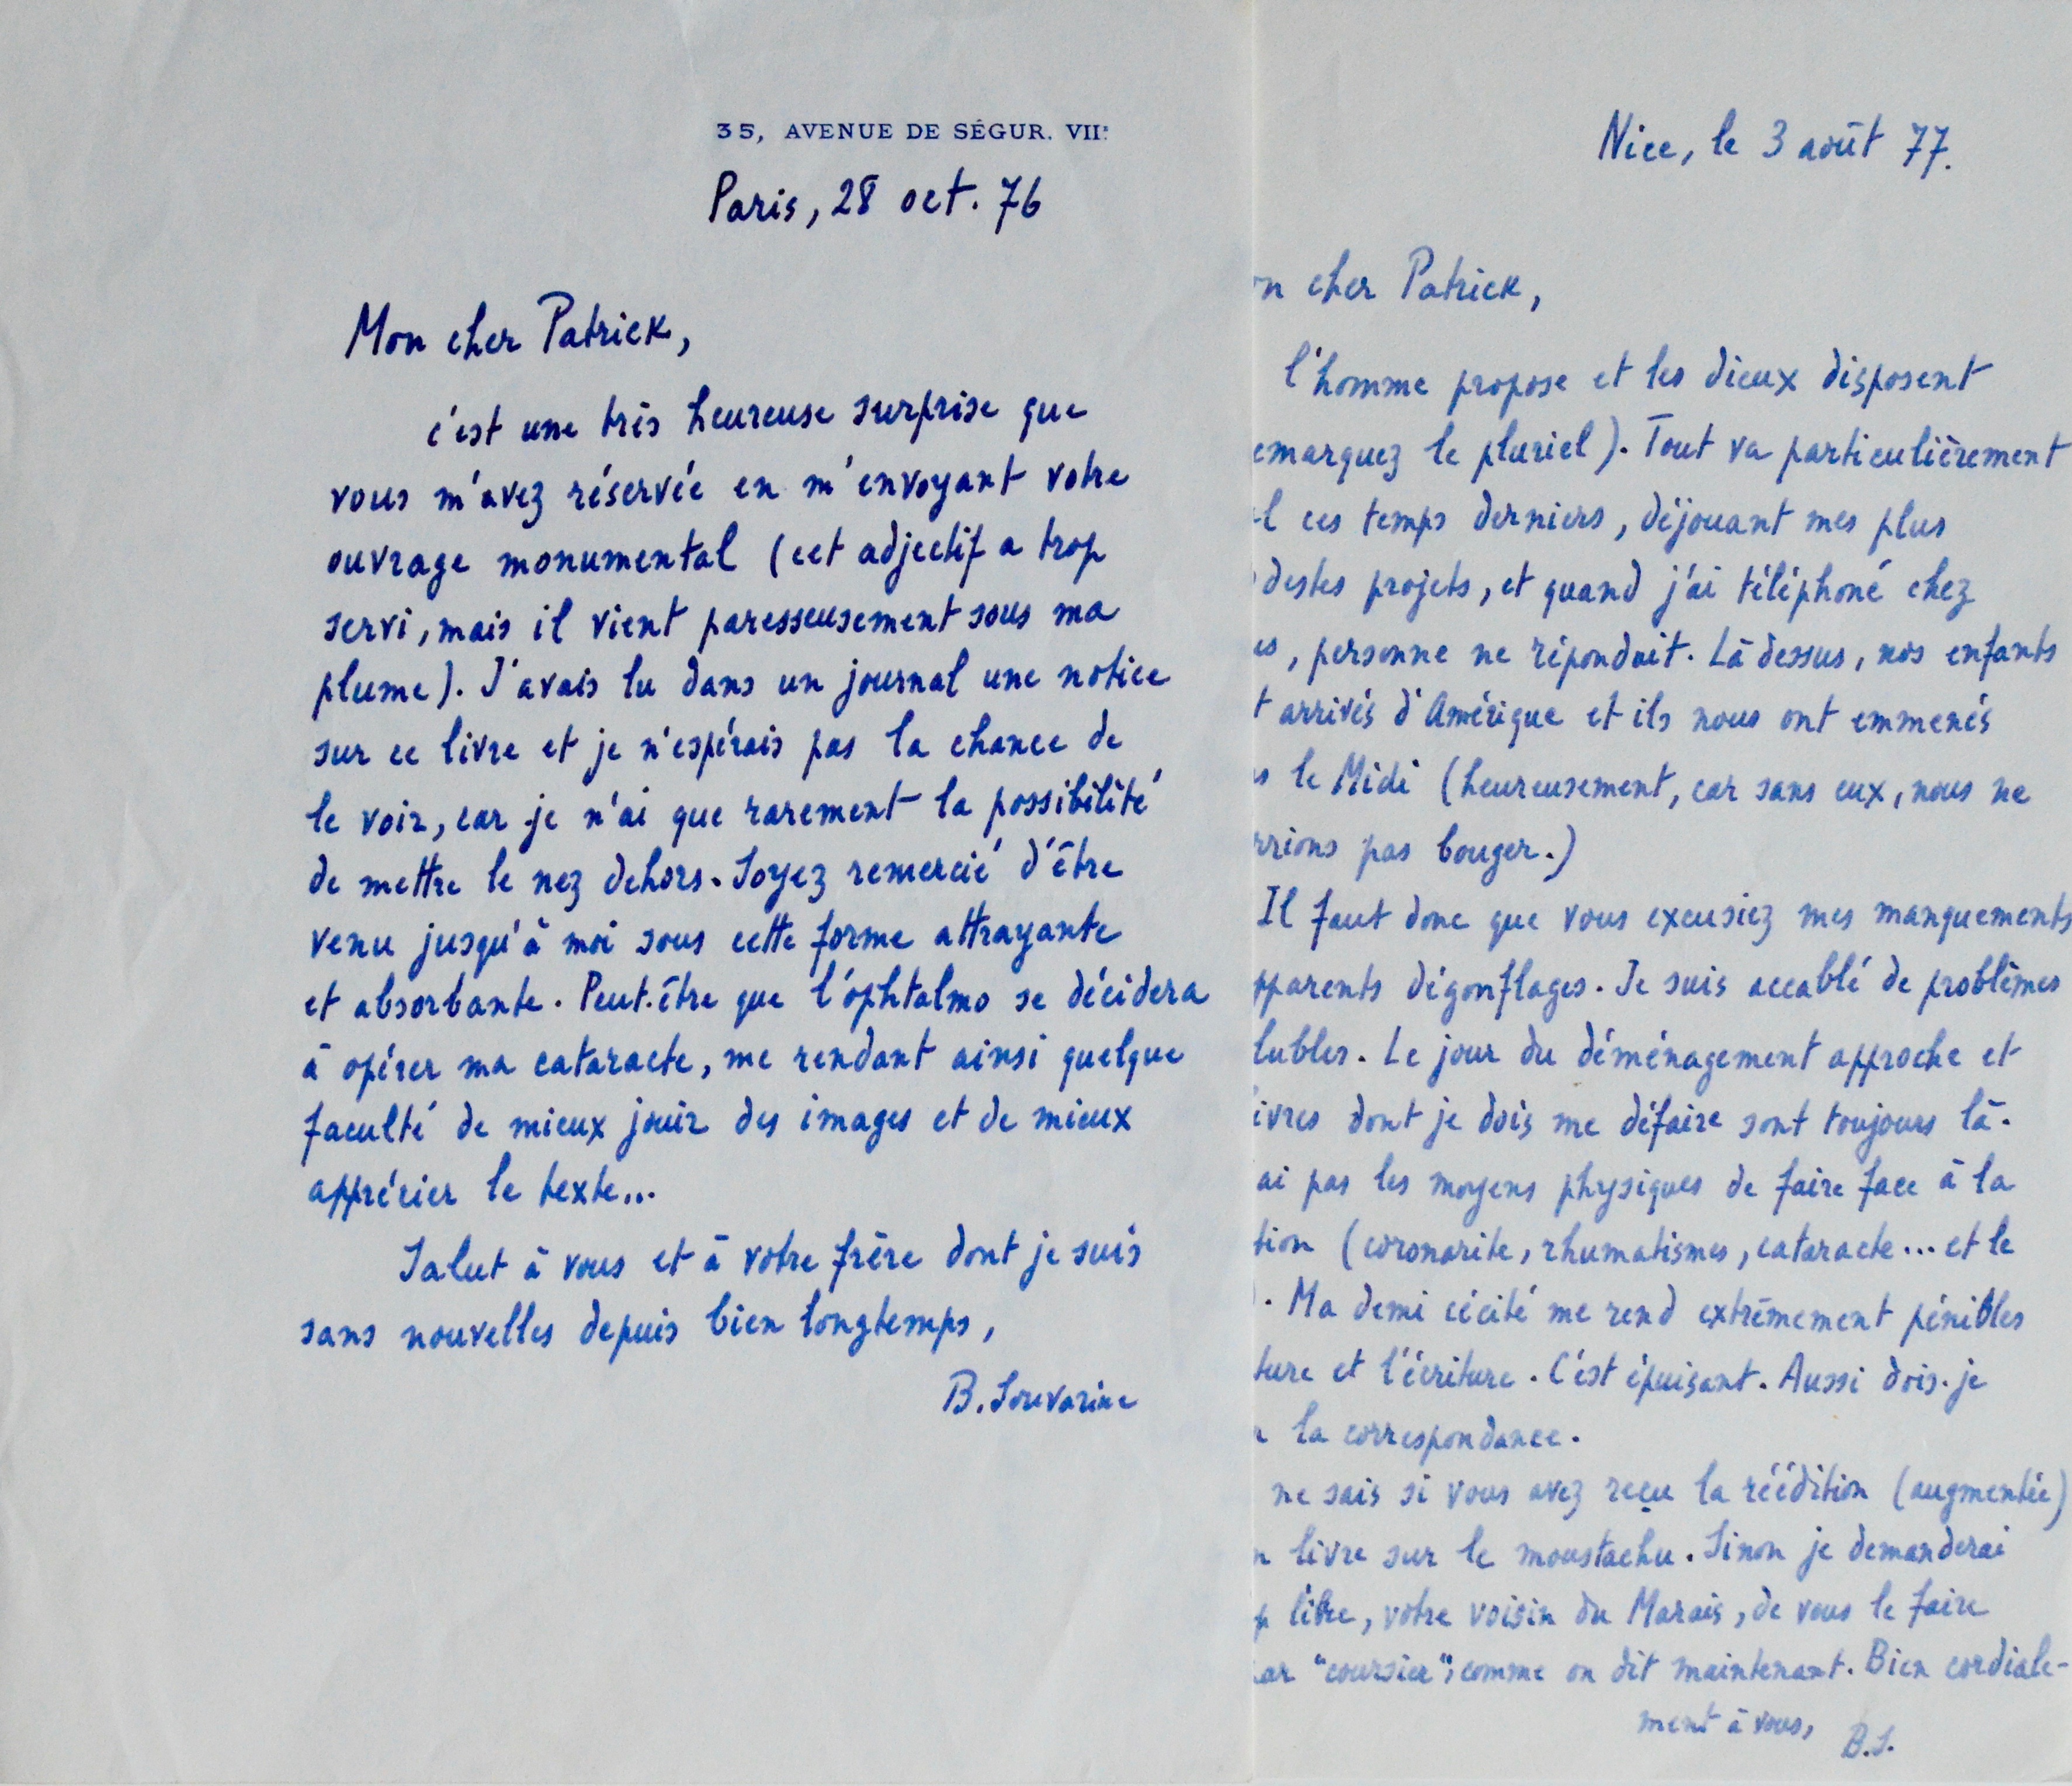 35, AVENUE DE SÉGUR. VIIe
Paris, 28 oct. 76
Mon cher Patrick,
c'est une très heureuse surprise que
vous m'avez réservée en m'envoyant votre
ouvrage monumental (cet adjectif a trop
servi, mais il vient paresseusement sous ma
plume). J'avais lu dans un journal une notice
sur ce livre et je n'espérais pas la chance de
le voir, car je n'ai que rarement la possibilité
de mettre le nez dehors. Soyez remercié d'être
venu jusqu'à moi sous cette forme attrayante
et absorbante. Peut-être que l'ophtalmo se décidera
à opérer ma cataracte, me rendant ainsi quelque
faculté de mieux jouir des images et de mieux
apprécier le texte...
Salut à vous et à votre frère dont je suis
sans nouvelles depuis bien longtemps,
B. Souvarine
Nice, le 3 août 77.
n cher Patrick,
l'homme propose et les dieux disposent
emarquez le pluriel). Tout va particulièrement
l ces temps derniers, déjouant mes plus
destes projets, et quand j'ai téléphoné chez
us, personne ne répondait. Là dessus, nos enfants
t arrivés d'Amérique et ils nous ont emmenés
s le Midi (heureusement, car sans eux, nous ne
rrions pas bouger.)
Il faut donc que vous excusiez mes manquements
pparents dégonflages. Je suis accablé de problèmes
lubles. Le jour du déménagement approche et
ivres dont je dois me défaire sont toujours là.
ai pas les moyens physiques de faire face à la
tion (coronarite, rhumatismes, cataracte... et le
). Ma demi cécité me rend extrêmement pénibles
ture et l'écriture. C'est épuisant. Aussi dois-je
la correspondance.
ne sais si vous avez reçu la réédition (augmentée)
n livre sur le moustachu. Sinon je demanderai
p libre, votre voisin du Marais, de vous le faire
ar "coursier", comme on dit maintenant. Bien cordiale-
ment à vous,
B.S.